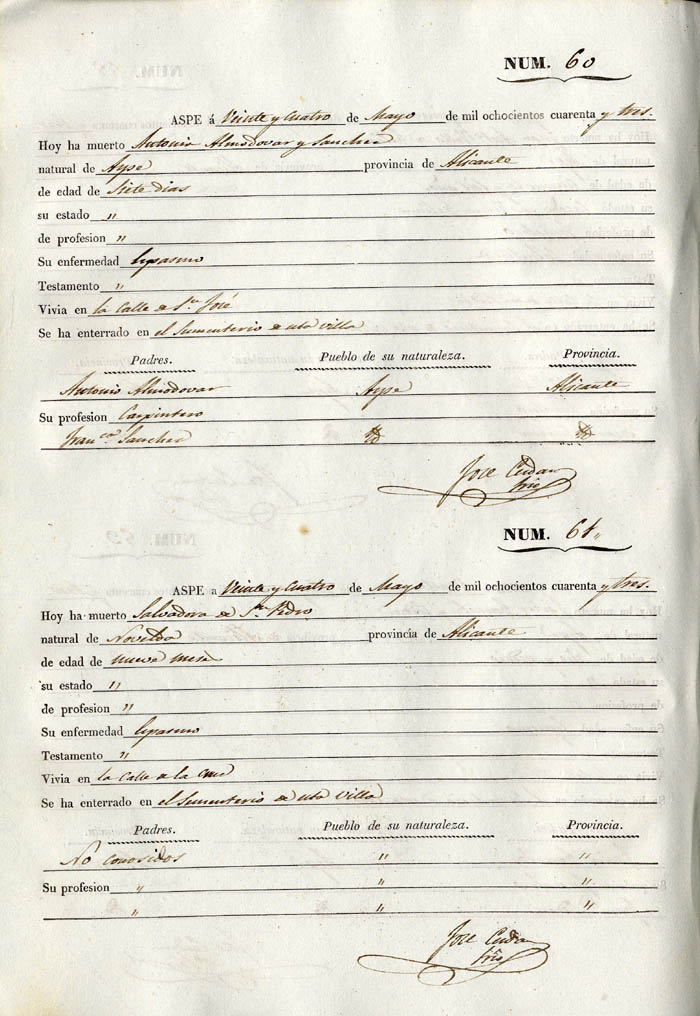 NUM. 60
ASPE á Veinte y Cuatro de Mayo de mil ochocientos cuarenta y tres.
Hoy ha muerto Antonio Almodovar y Sanchez
natural de Aspe provincia de Alicante
de edad de Siete dias
su estado "
de profesion "
Su enfermedad Espasmo
Testamento "
Vivia en la Calle de Sn José
Se ha enterrado en el Sementerio de esta Villa
Padres. Pueblo de su naturaleza. Provincia.
Antonio Almodovar Aspe Alicante
Su profesion Carpintero
Franca Sanchez
Jose Cerdan
Srio
NUM. 61"
ASPE a Veinte y Cuatro de Mayo de mil ochocientos cuarenta y tres.
Hoy ha muerto Salvadora de Sn Pedro
natural de Novelda provincia de Alicante
de edad de nueve mese
su estado "
de profesion "
Su enfermedad Espasmo
Testamento "
Vivia en la Calle de la Cruz
Se ha enterrado en el Sementerio de esta Villa
Padres. Pueblo de su naturaleza. Provincia.
No conosidos " "
Su profesion " " "
" " "
Jose Cerdan
Srio